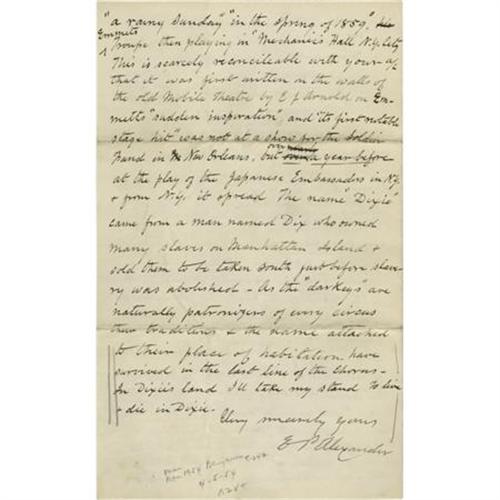 "a rainy Sunday" in the spring of 1859, his
Emmets
Troupe then playing in "Mechanic's Hall N.Y. City
This is scarcely reconcileable with your a/c
that it was "first written on the walls of
the old Mobile Theatre by E J Arnold on Em-
mett's "sudden inspiration", and "its first notable
stage hit" was not at a show for the Soldier
Fund in New Orleans, but over a year before
at the play of the Japanese Embassadors in N.Y.
& from N.Y. it spread The name "Dixie"
came from a man named Dix who owned
many slaves on Manhattan Island &
sold them to be taken South just before slave-
ry was abolished - As the "darkeys" are
naturally patronizers of every circus
their traditions & the name attached
to their place of habitation have
survived in the last line of the chorus -
In Dixie's land I'll take my stand To live
& die in Dixie -
Very sincerely yours
E P Alexander
4-5-54